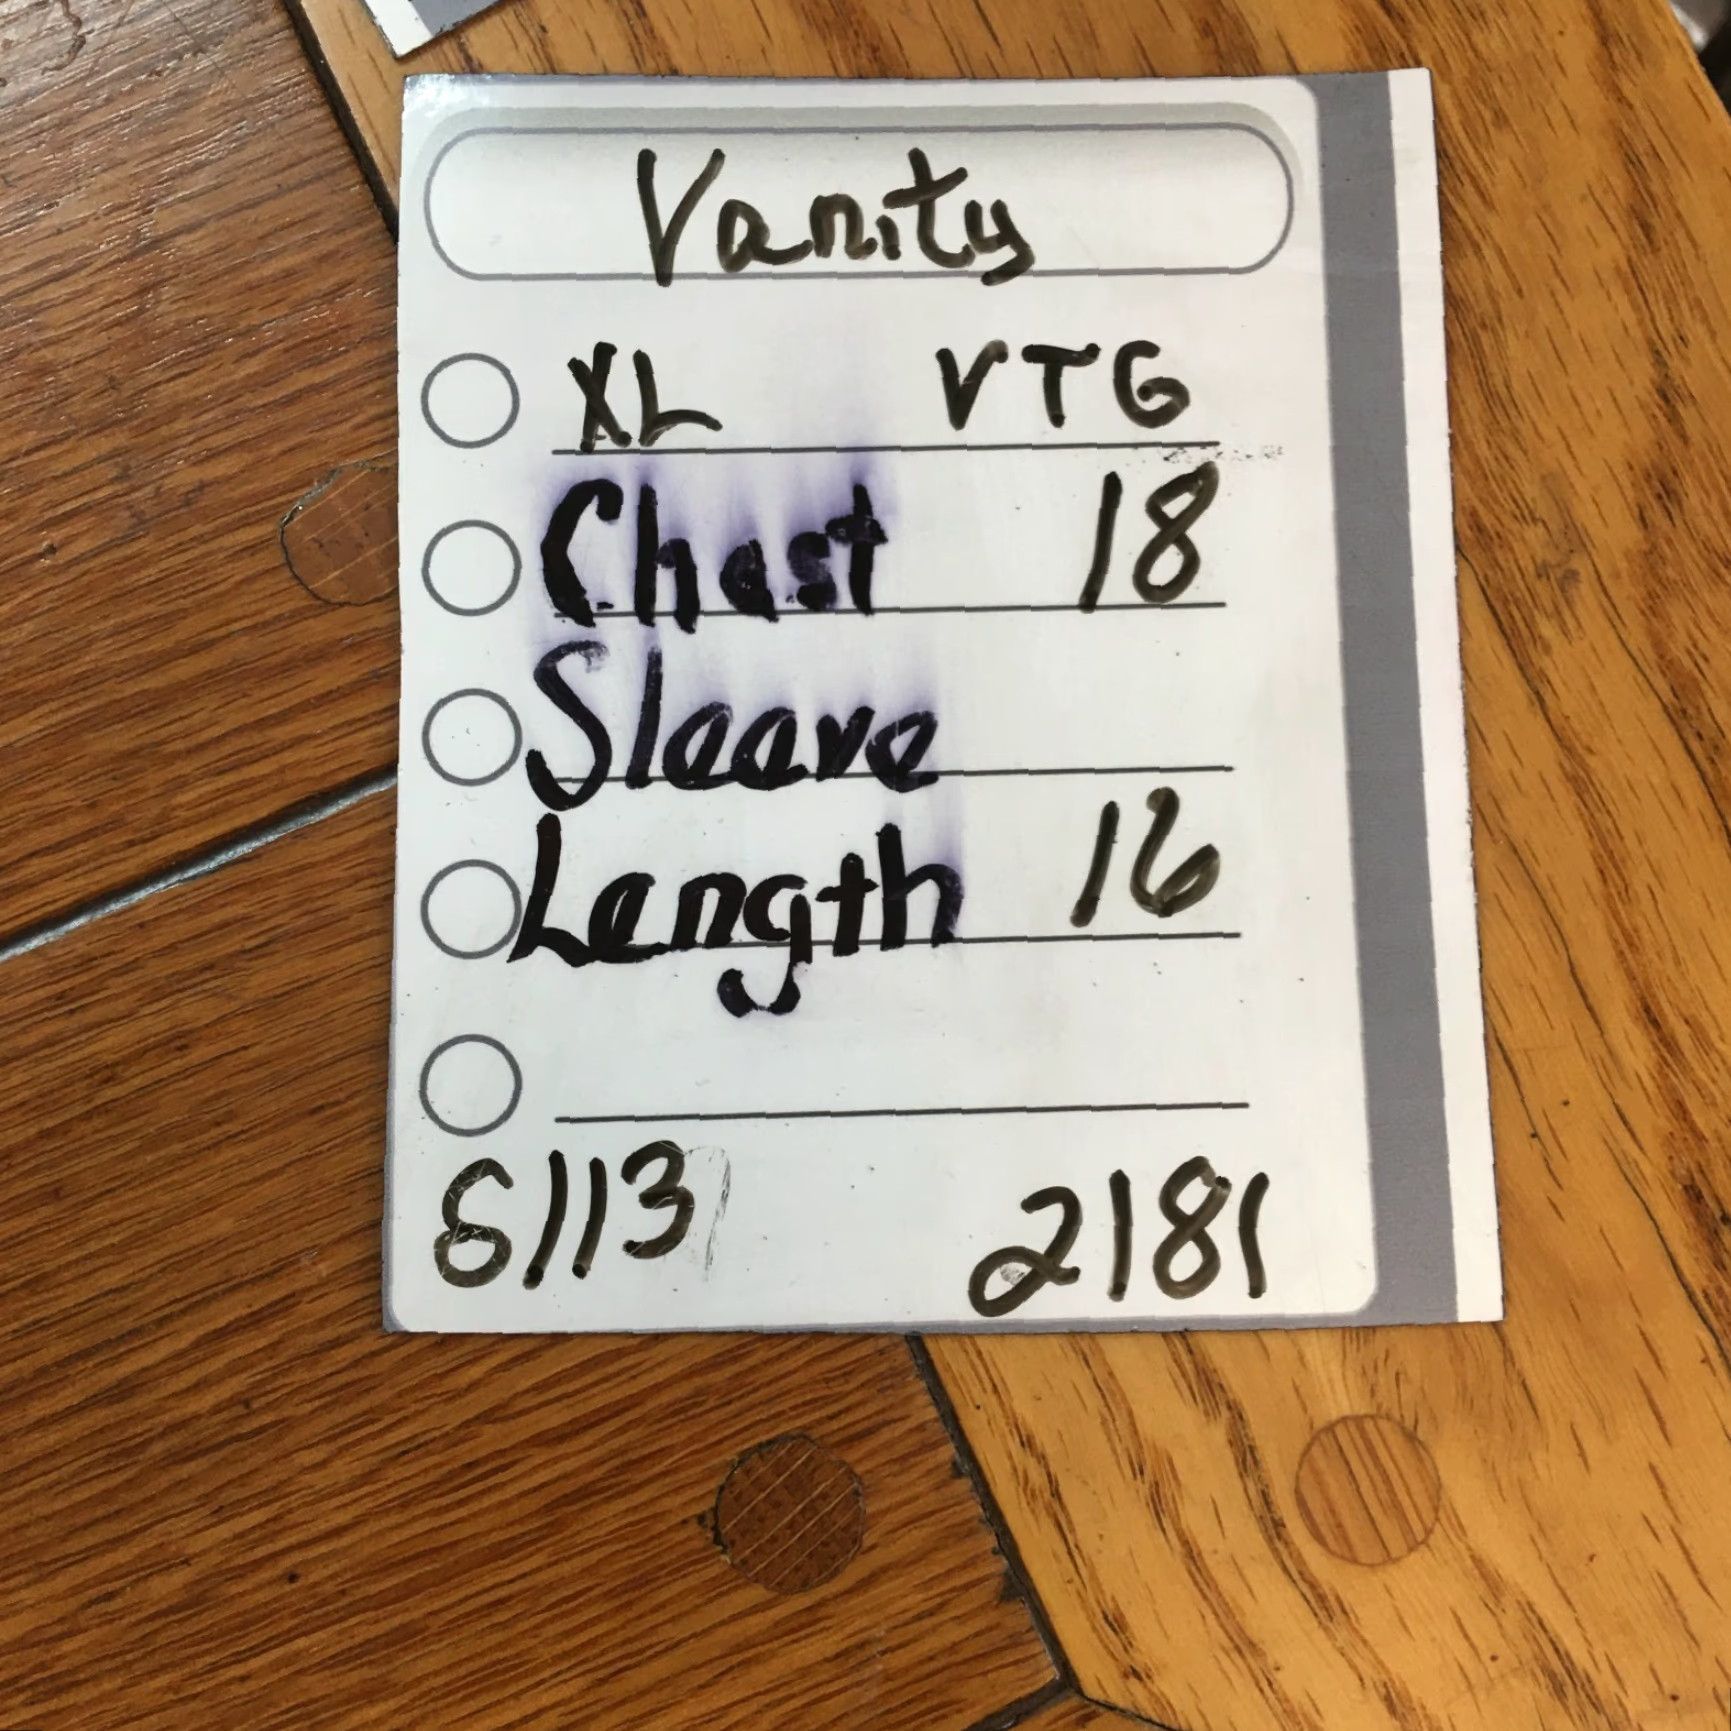 Vanity
XL VTG
Chest 18
Sleeve
Length 16
6113 2181